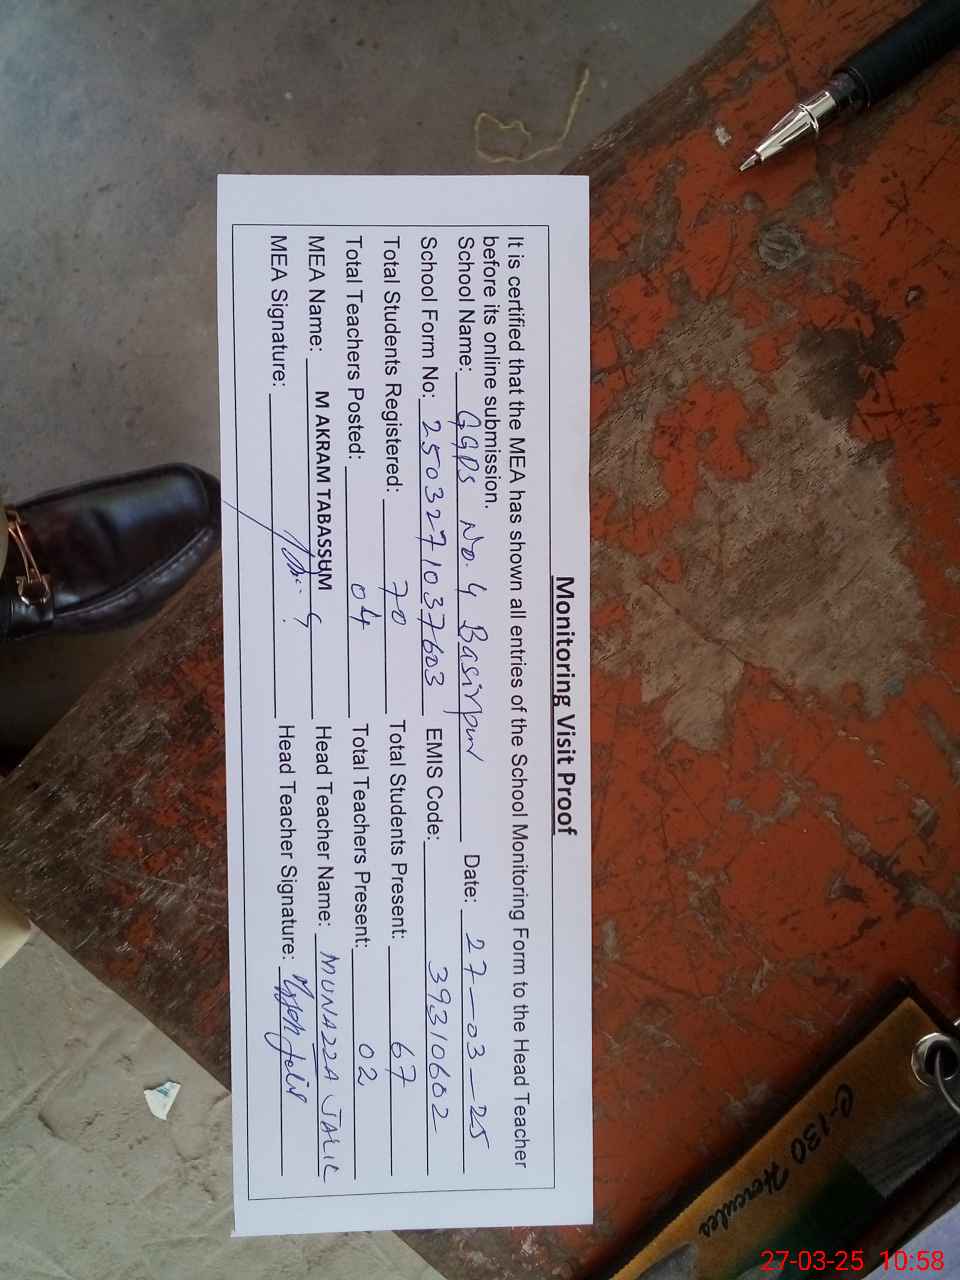 Monitoring Visit Proof
It is certified that the MEA has shown all entries of the School Monitoring Form to the Head Teacher
before its online submission.
School Name: GGPS No. 4 Basirpur Date: 27-03-25
School Form No: 2503271037603 EMIS Code: 39310602
Total Students Registered: 70 Total Students Present: 67
Total Teachers Posted: 04 Total Teachers Present: 02
MEA Name: M AKRAM TABASSUM Head Teacher Name: MUNAZZA JALIL
MEA Signature: Head Teacher Signature:
C-130 Hercules
27-03-25 10:58